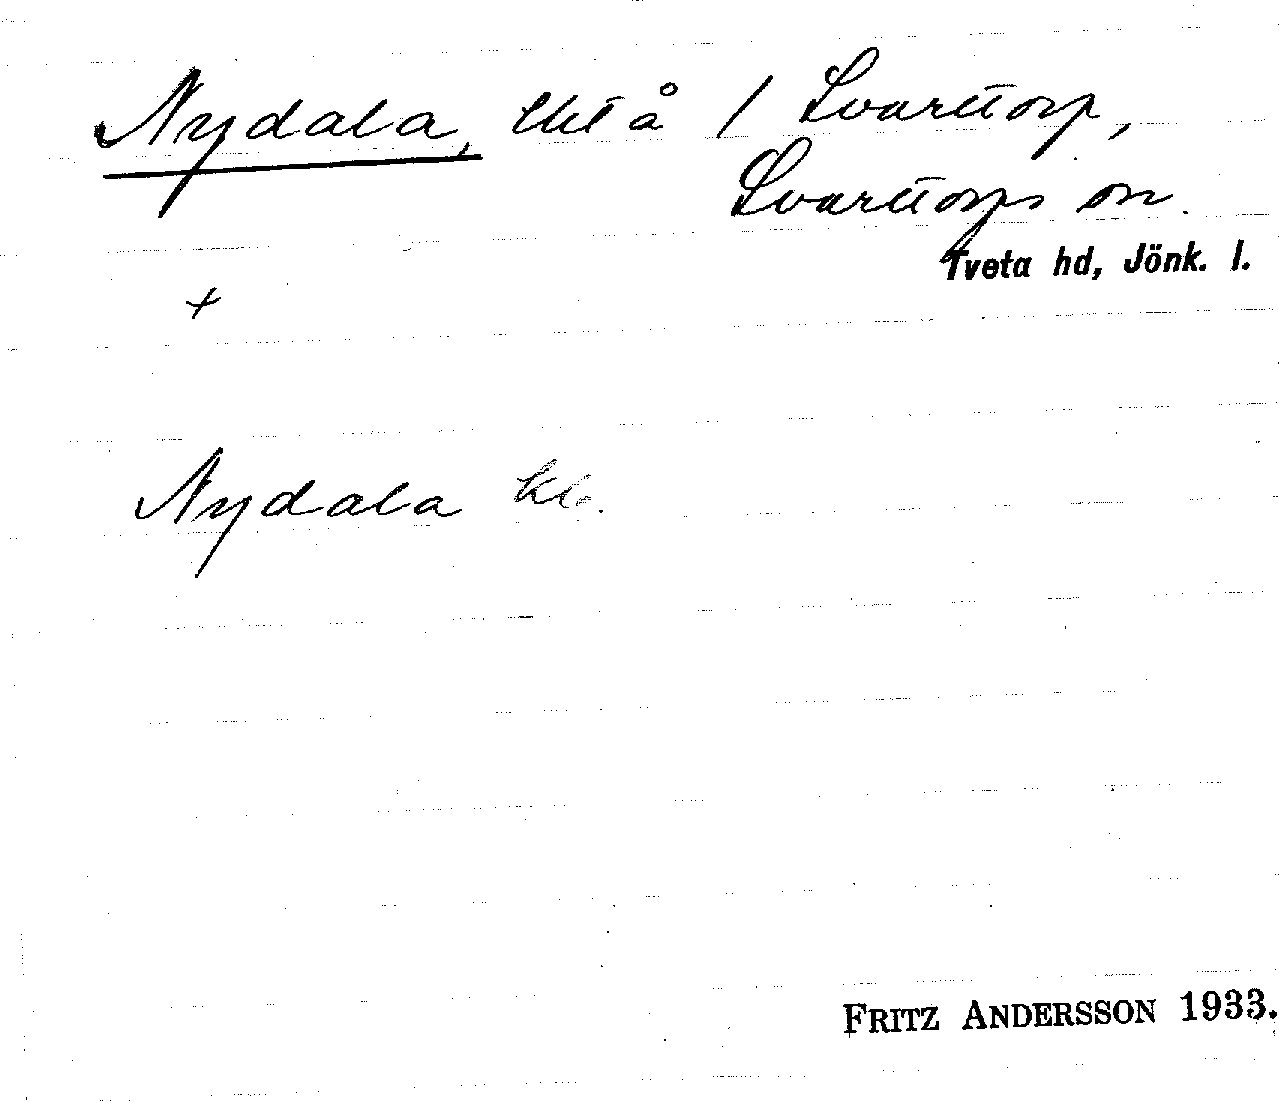 Nydala, tkt å 1 Svarttorp,
Svarttorps sn.
Tveta hd, Jönk. l.
+
Nydala kl.
FRITZ ANDERSSON 1933.